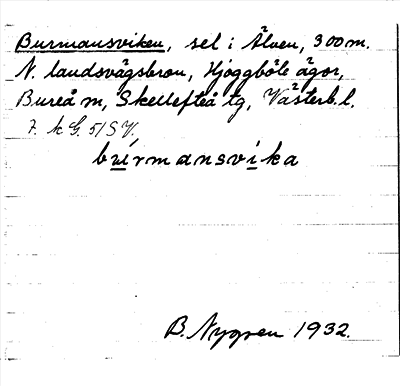 Burmansviken, sel i Älven, 300 m.
N. landsvägsbron, Hjoggböle ägor,
Bureå m, Skellefteå tg, Västerb. l.
7. k G. 51 SV.
bu̲i̲rmansvi̲ka
B. Nygren 1932.